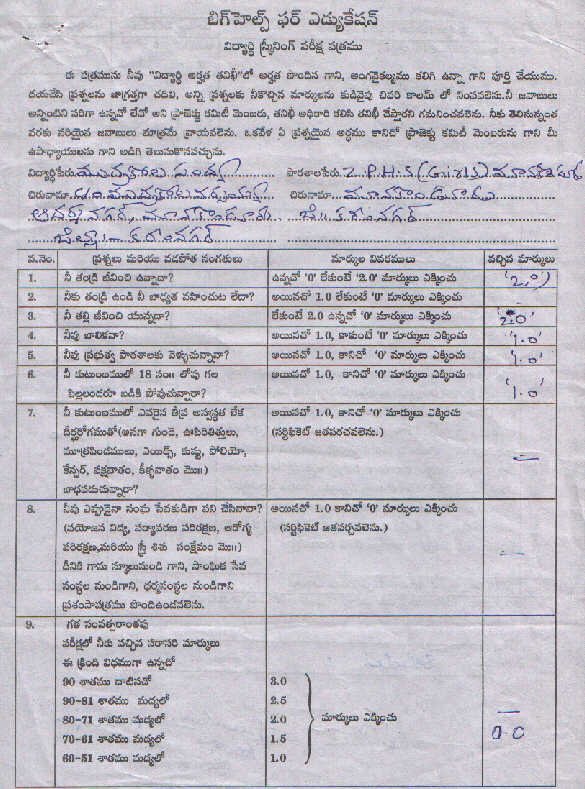 బిగ్‌హెల్ప్ ఫర్ ఎడ్యుకేషన్
విద్యార్థి స్క్రీనింగ్ పరీక్ష పత్రము
ఈ పత్రమును నీవు "విద్యార్థి అర్హత తనిఖీ"లో అర్హత పొందిన గాని, అంగవైకల్యము కలిగి ఉన్నా గాని పూర్తి చేయుము.
దయచేసి ప్రశ్నలను జాగ్రత్తగా చదివి, అన్ని ప్రశ్నలకు నీకొచ్చిన మార్కులను కుడివైపు చివరి కాలమ్ లో నింపవలెను.నీ జవాబులు
అన్నింటిని సరిగా ఉన్నవో లేవో అని ప్రాజెక్టు కమిటీ మెంబరు, తనిఖీ అధికారి కలిసి తనిఖీ చేస్తారని గమనించవలెను. నీకు తెలిసున్నంత
వరకు సరియైన జవాబులు మాత్రమే వ్రాయవలెను. ఒకవేళ ఏ ప్రశ్నయైన అర్థము కానిచో ప్రాజెక్టు కమిటీ మెంబరును గాని మీ
ఉపాధ్యాయులను గాని అడిగి తెలుసుకొనవచ్చును.
విద్యార్థిపేరు పాఠశాలపేరు Z.P.H.S (Girls)
చిరునామా చిరునామా
కరీంనగర్
జిల్లా కరీంనగర్
వ.నెం. ప్రశ్నలు మరియు వడపోత సంగతులు మార్కుల వివరములు వచ్చిన మార్కులు
1. నీ తండ్రి జీవించి ఉన్నాడా? ఉన్నచో '0' లేకుంటే '2.0' మార్కులు ఎక్కించు '2.0'
2. నీకు తండ్రి ఉండి నీ బాధ్యత వహించుట లేదా? అయినచో 1.0 లేకుంటే '0' మార్కులు ఎక్కించు
3. నీ తల్లి జీవించి యున్నదా? లేకుంటే 2.0 ఉన్నచో '0' మార్కులు ఎక్కించు '2.0'
4. నీవు బాలికవా? అయినచో 1.0, కాకుంటే '0' మార్కులు ఎక్కించు '1.0'
5. నీవు ప్రభుత్వ పాఠశాలకు వెళ్ళుచున్నావా? అయినచో 1.0, కానిచో '0' మార్కులు ఎక్కించు '1.0'
6. నీ కుటుంబములో 18 సం॥ లోపు గల అయినచో 1.0, కానిచో '0' మార్కులు ఎక్కించు
పిల్లలందరూ బడికి పోవుచున్నారా? '1.0
7. నీ కుటుంబములో ఎవరైన తీవ్ర అస్వస్థత లేక అయినచో 1.0, కానిచో '0' మార్కులు ఎక్కించు
దీర్ఘరోగముతో(అనగా గుండె, ఊపిరితిత్తులు, (సర్టిఫికెట్ జతపరచవలెను.)
మూత్రపిండములు, ఎయిడ్స్, కుష్ఠు, పోలియో,
కేన్సర్, పక్షవాతం, కీళ్ళవాతం మొ॥)
బాధపడుచున్నారా?
8. నీవు ఎప్పుడైనా సంఘ సేవకుడిగా పని చేసినావా? అయినచో 1.0 కానిచో '0' మార్కులు ఎక్కించు
(వయోజన విద్య, పర్యావరణ పరిరక్షణ, ఆరోగ్య (సర్టిఫికెట్ జతపర్చవలెను.)
పరిరక్షణ,మరియు స్త్రీ శిశు సంక్షేమం మొ॥)
దీనికి గాను స్కూలునుండి గాని, సాంఘిక సేవ
సంస్థల నుండిగాని, ధర్మసంస్థల నుండిగాని
ప్రశంసాపత్రము పొందిఉండవలెను.
9. గత సంవత్సరాంతపు
పరీక్షలో నీకు వచ్చిన సరాసరి మార్కులు
ఈ క్రింది విధముగా ఉన్నచో
90 శాతము దాటినచో 3.0
90-81 శాతము మధ్యలో 2.5
80-71 శాతము మధ్యలో 2.0 మార్కులు ఎక్కించు
70-61 శాతము మధ్యలో 1.5 0.0
60-51 శాతము మధ్యలో 1.0